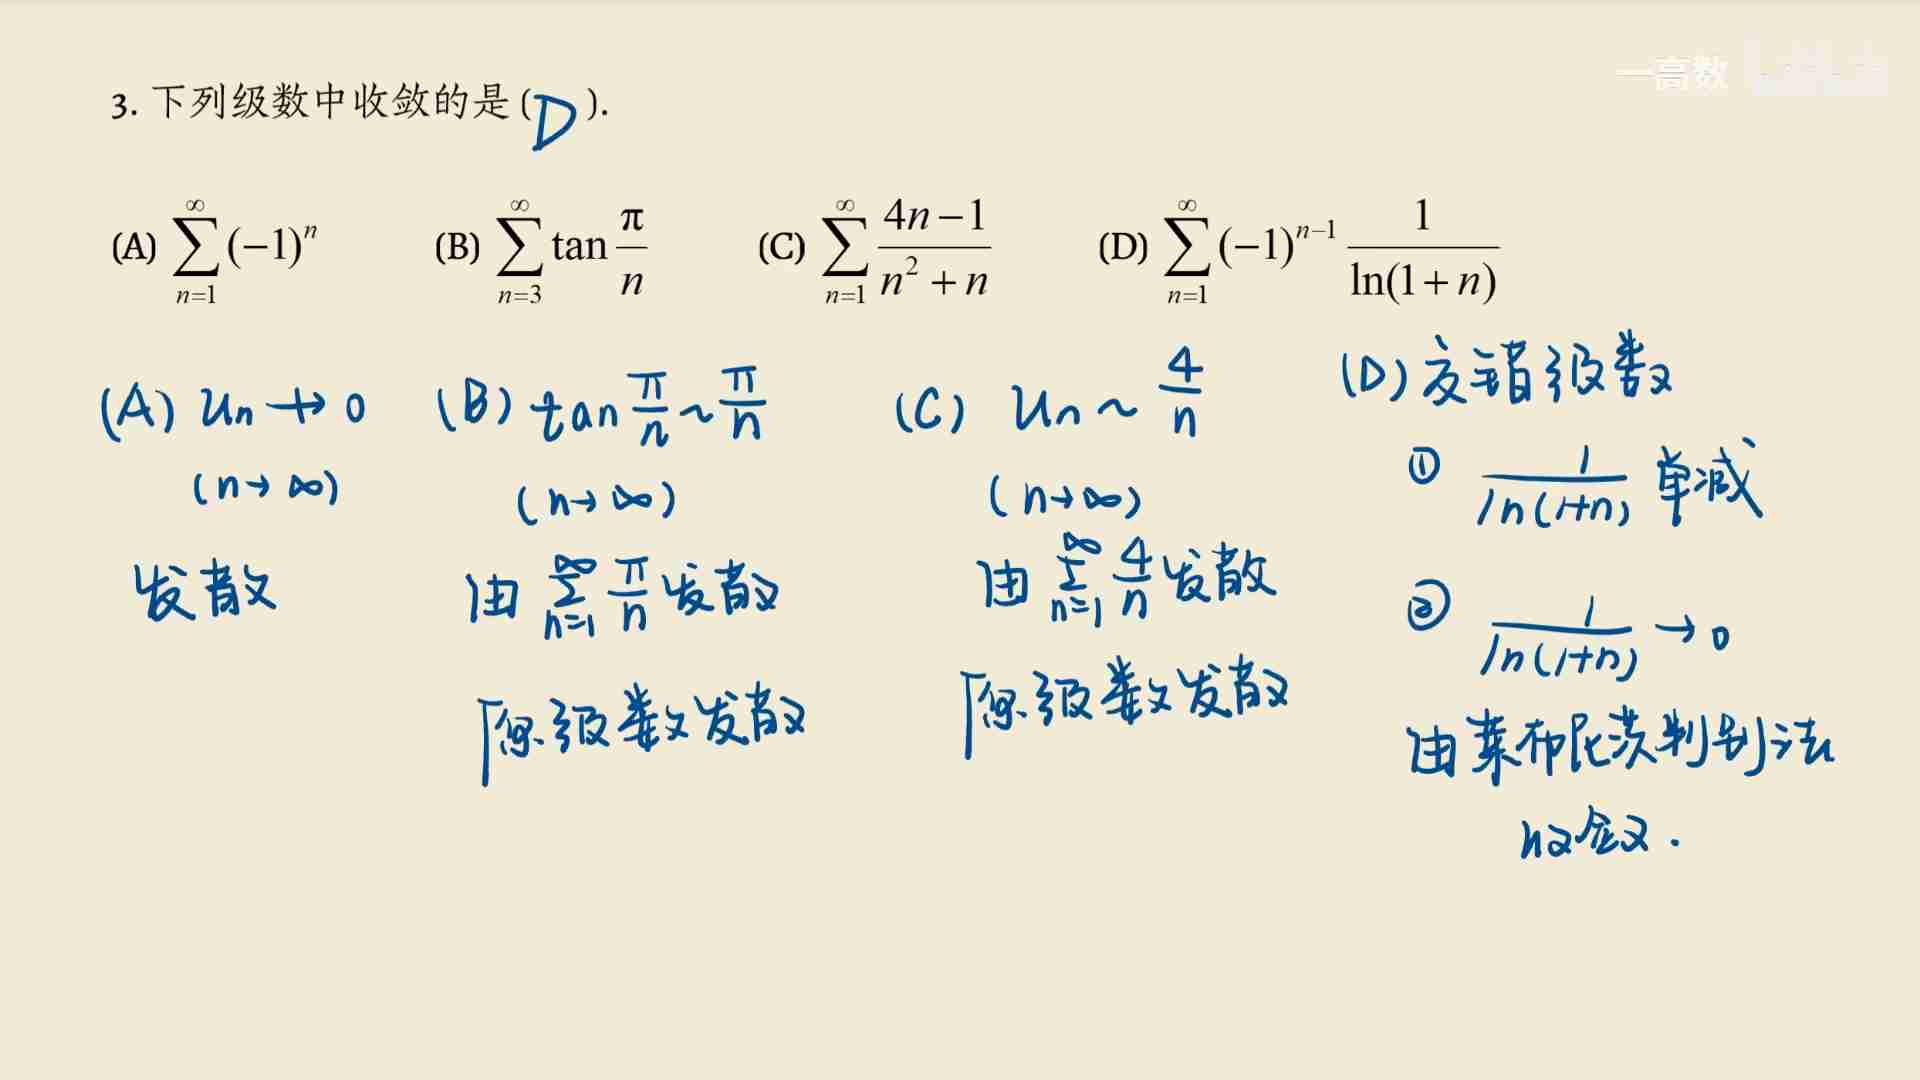 一高数
3. 下列级数中收敛的是 ( D ).
(A) $\sum_{n=1}^{\infty}(-1)^n$ (B) $\sum_{n=3}^{\infty}\tan\frac{\pi}{n}$ (C) $\sum_{n=1}^{\infty}\frac{4n-1}{n^2+n}$ (D) $\sum_{n=1}^{\infty}(-1)^{n-1}\frac{1}{\ln(1+n)}$
(A) $u_n \nrightarrow 0$
(n→∞)
发散
(B) $\tan\frac{\pi}{n} \sim \frac{\pi}{n}$
(n→∞)
由 $\sum_{n=1}^{\infty}\frac{\pi}{n}$ 发散
原级数发散
(C) $u_n \sim \frac{4}{n}$
(n→∞)
由 $\sum_{n=1}^{\infty}\frac{4}{n}$ 发散
原级数发散
(D) 交错级数
① $\frac{1}{\ln(1+n)}$ 单减
② $\frac{1}{\ln(1+n)} \to 0$
由莱布尼茨判别法
收敛.